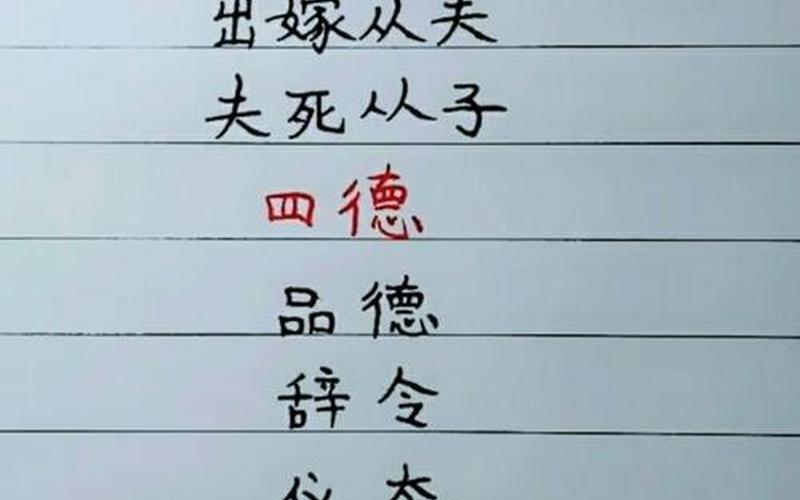 出嫁从夫
夫死从子
四德
品德
辞令
仪态